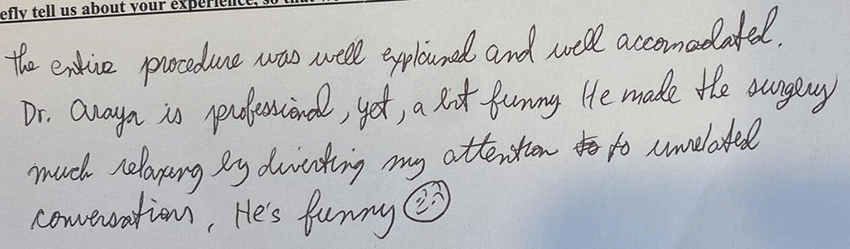 efly tell us about your experience, so that
the entire procedure was well explained and well accomadated.
Dr. Araya is professional, yet, a bit funny He made the surgery
much relaxing by diverting my attention to to unrelated
conversations, He's funny